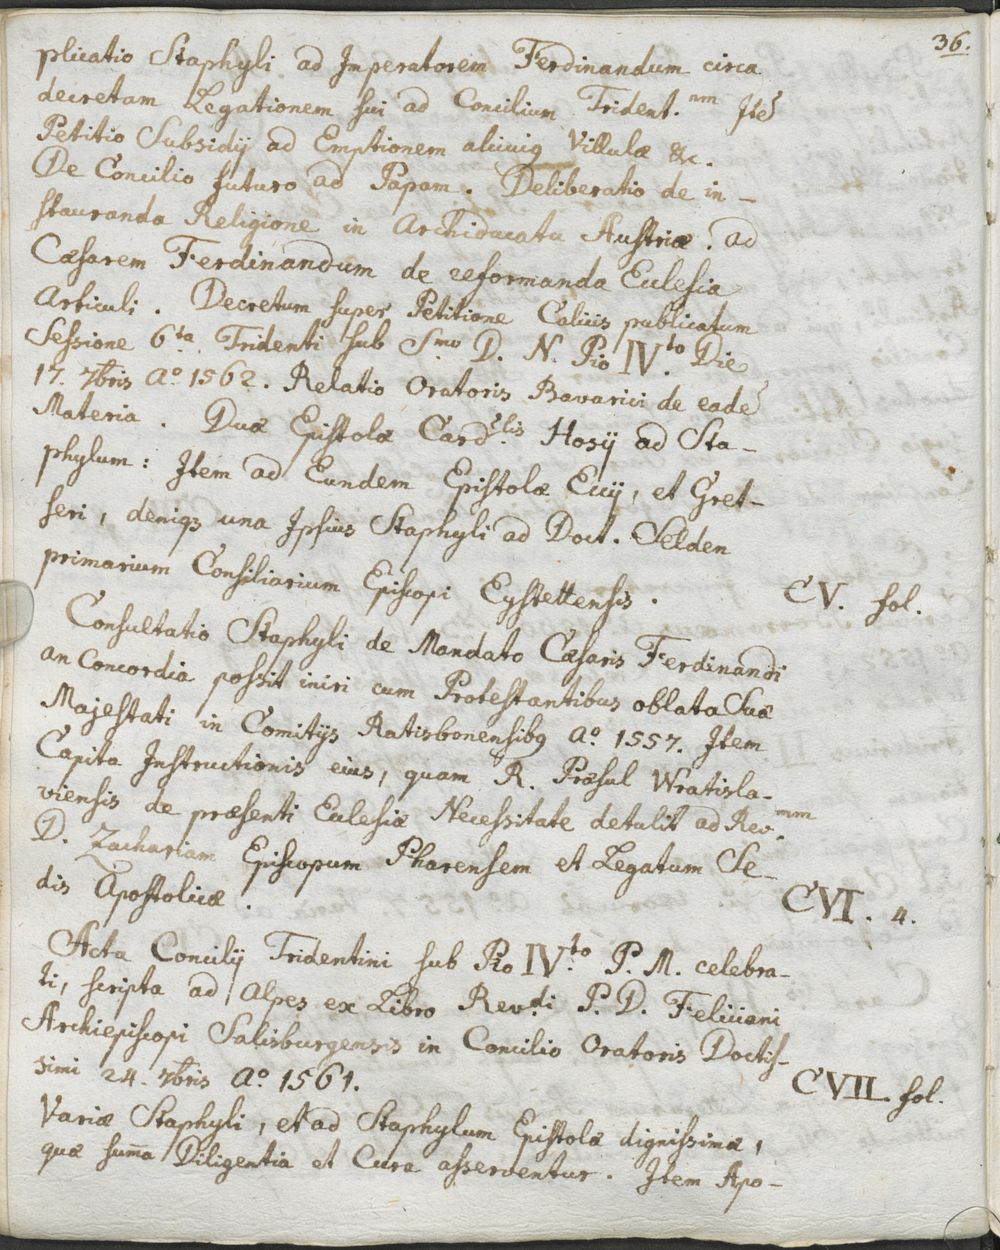 36.
plicatio Staphyli ad Imperatorem Ferdinandum circa
decretam Legationem sui ad Concilium Trident.um Itē
Petitio Subsidij ad Emptionem alicuiq Villulæ &c.
De Concilio futuro ad Papam. Deliberatio de in-
stauranda Religione in Archiducatu Austriæ. ad
Cæsarem Ferdinandum de reformanda Eclesia
Articuli. Decretum super Petitione Calicis publicatum
Sessione 6ta Tridenti sub Smo D. N. Pio IV.to Die
17. 7bris Ao. 1562. Relatio Oratoris Bavarici de eadē
Materia. Duæ Epistolæ Card.lis Hosij ad Sta-
phylum: Item ad Eundem Epistolæ Ecij, et Gret-
seri, deniqȝ una Ipsius Staphyli ad Doct. Selden
primarium Consiliarium Episcopi Eystettensis. CV. fol.
Consultatio Staphyli de Mandato Cæsaris Ferdinandi
an Concordia possit iniri cum Protestantibus oblata Suæ
Majestati in Comitijs Ratisbonensibq Ao. 1557. Item
Capita Instructionis eius, quam R. Præsul Wratisla-
viensis de præsenti Eclesiæ Necessitate detulit ad Rev.mum
D. Zachariam Episcopum Pharensem et Legatum Se-
dis Apostolicæ. CVI. 4.
Acta Concilij Tridentini sub Pio IV.to P. M. celebra-
ti, scripta ad Alpes ex Libro Rev.di P. D. Feliciani
Archiepiscopi Salisburgensis in Concilio Oratoris Doctis-
simi 24. 7bris Ao. 1561. CVII. fol.
Variæ Staphyli, et ad Staphylum Epistolæ dignissimæ,
quæ sum̄a Diligentia et Cura asserventur. Item Apo-